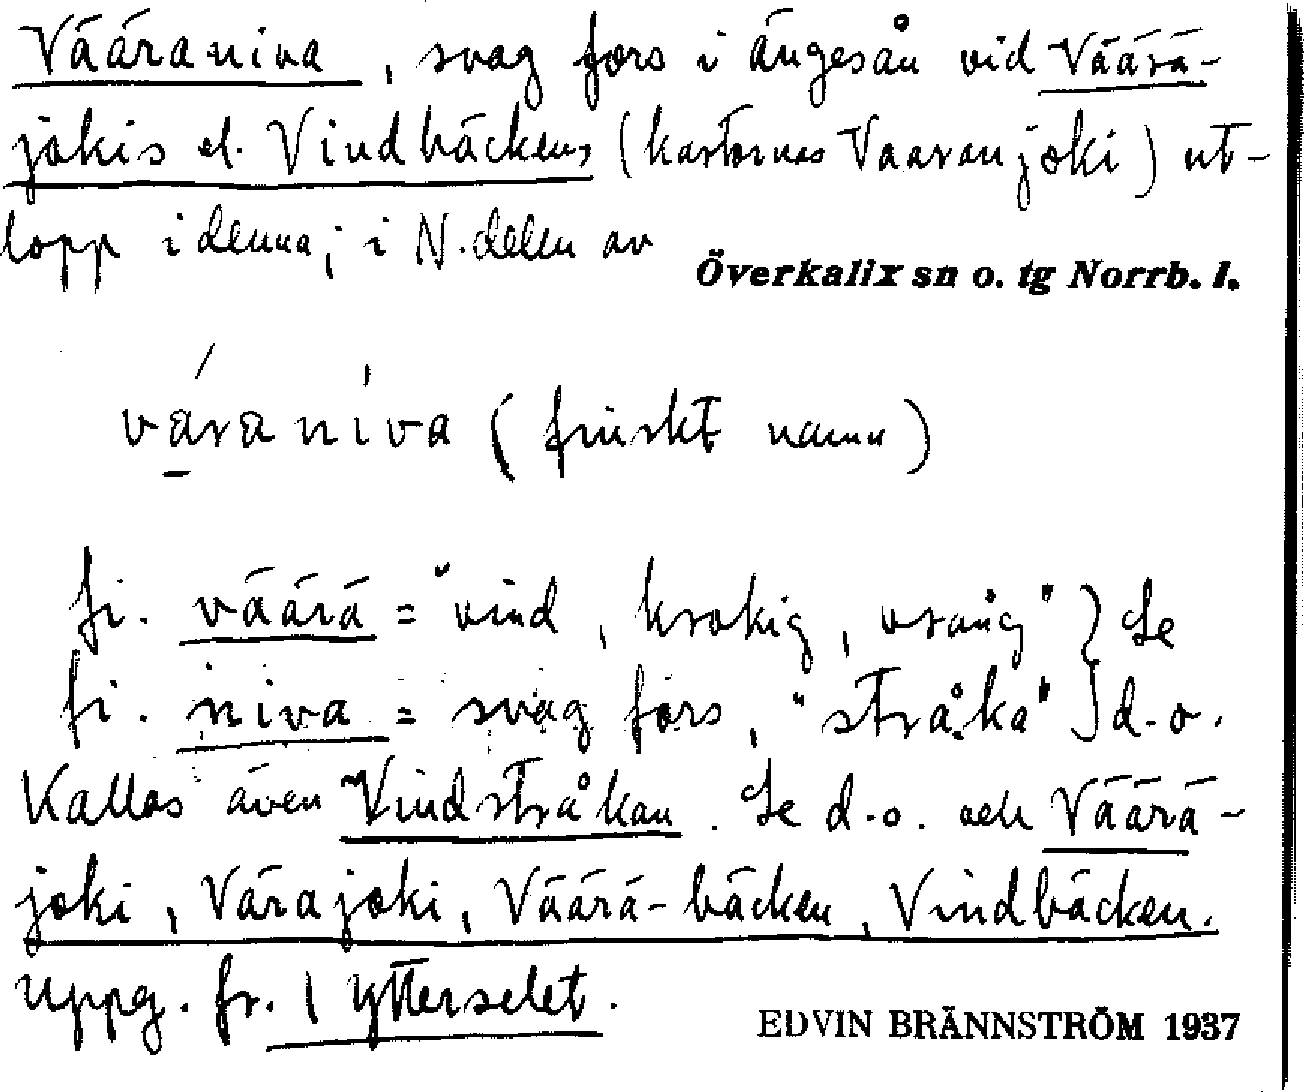 Vääraniva, svag fors i ängesån vid Väärä-
jokis el. Vindbäckens (kartornas Vaaranjoki) ut-
lopp i denna; i N. delen av
Överkalix sn o. tg Norrb. l.
váraníva (finskt namn)
fi. väärä = "vind, krokig, vrång" } Se
fi. niva = svag fors, "stråka" } d.o.
Kallas även Vindstråkan. Se d.o. och Väärä-
joki, Värajoki, Väärä-bäcken, Vindbäcken.
Uppg. fr. 1 Ytterselet.
EDVIN BRÄNNSTRÖM 1937